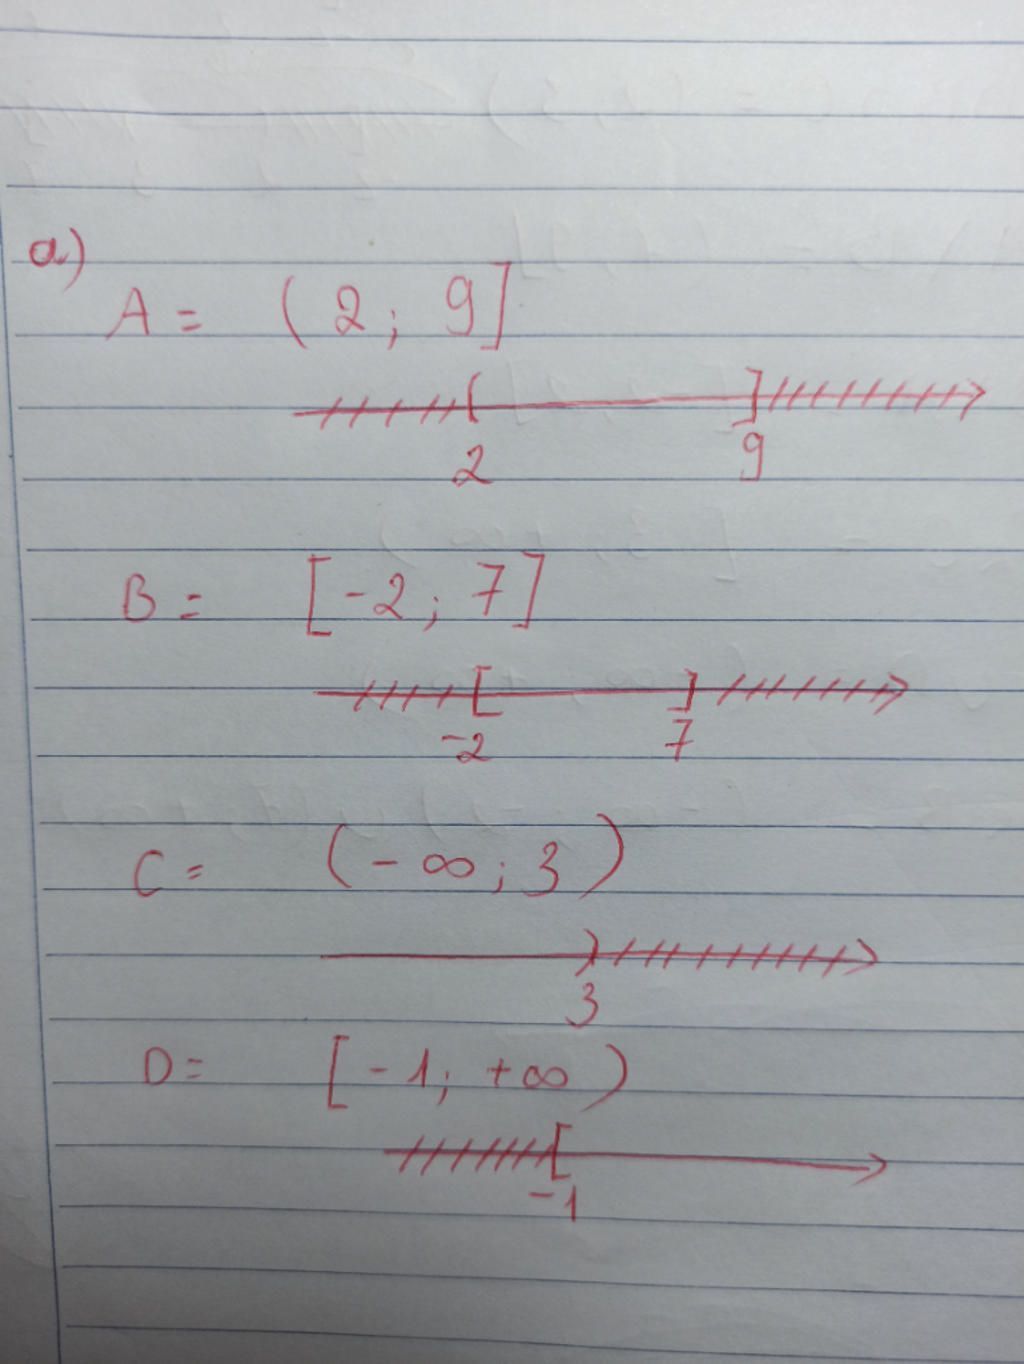 a)
A = ( 2 ; 9 ]
( ]
2 9
B = [ -2 ; 7 ]
[ ]
-2 7
C = ( - ∞ ; 3 )
)
3
D = [ - 1 ; +∞ )
[
-1